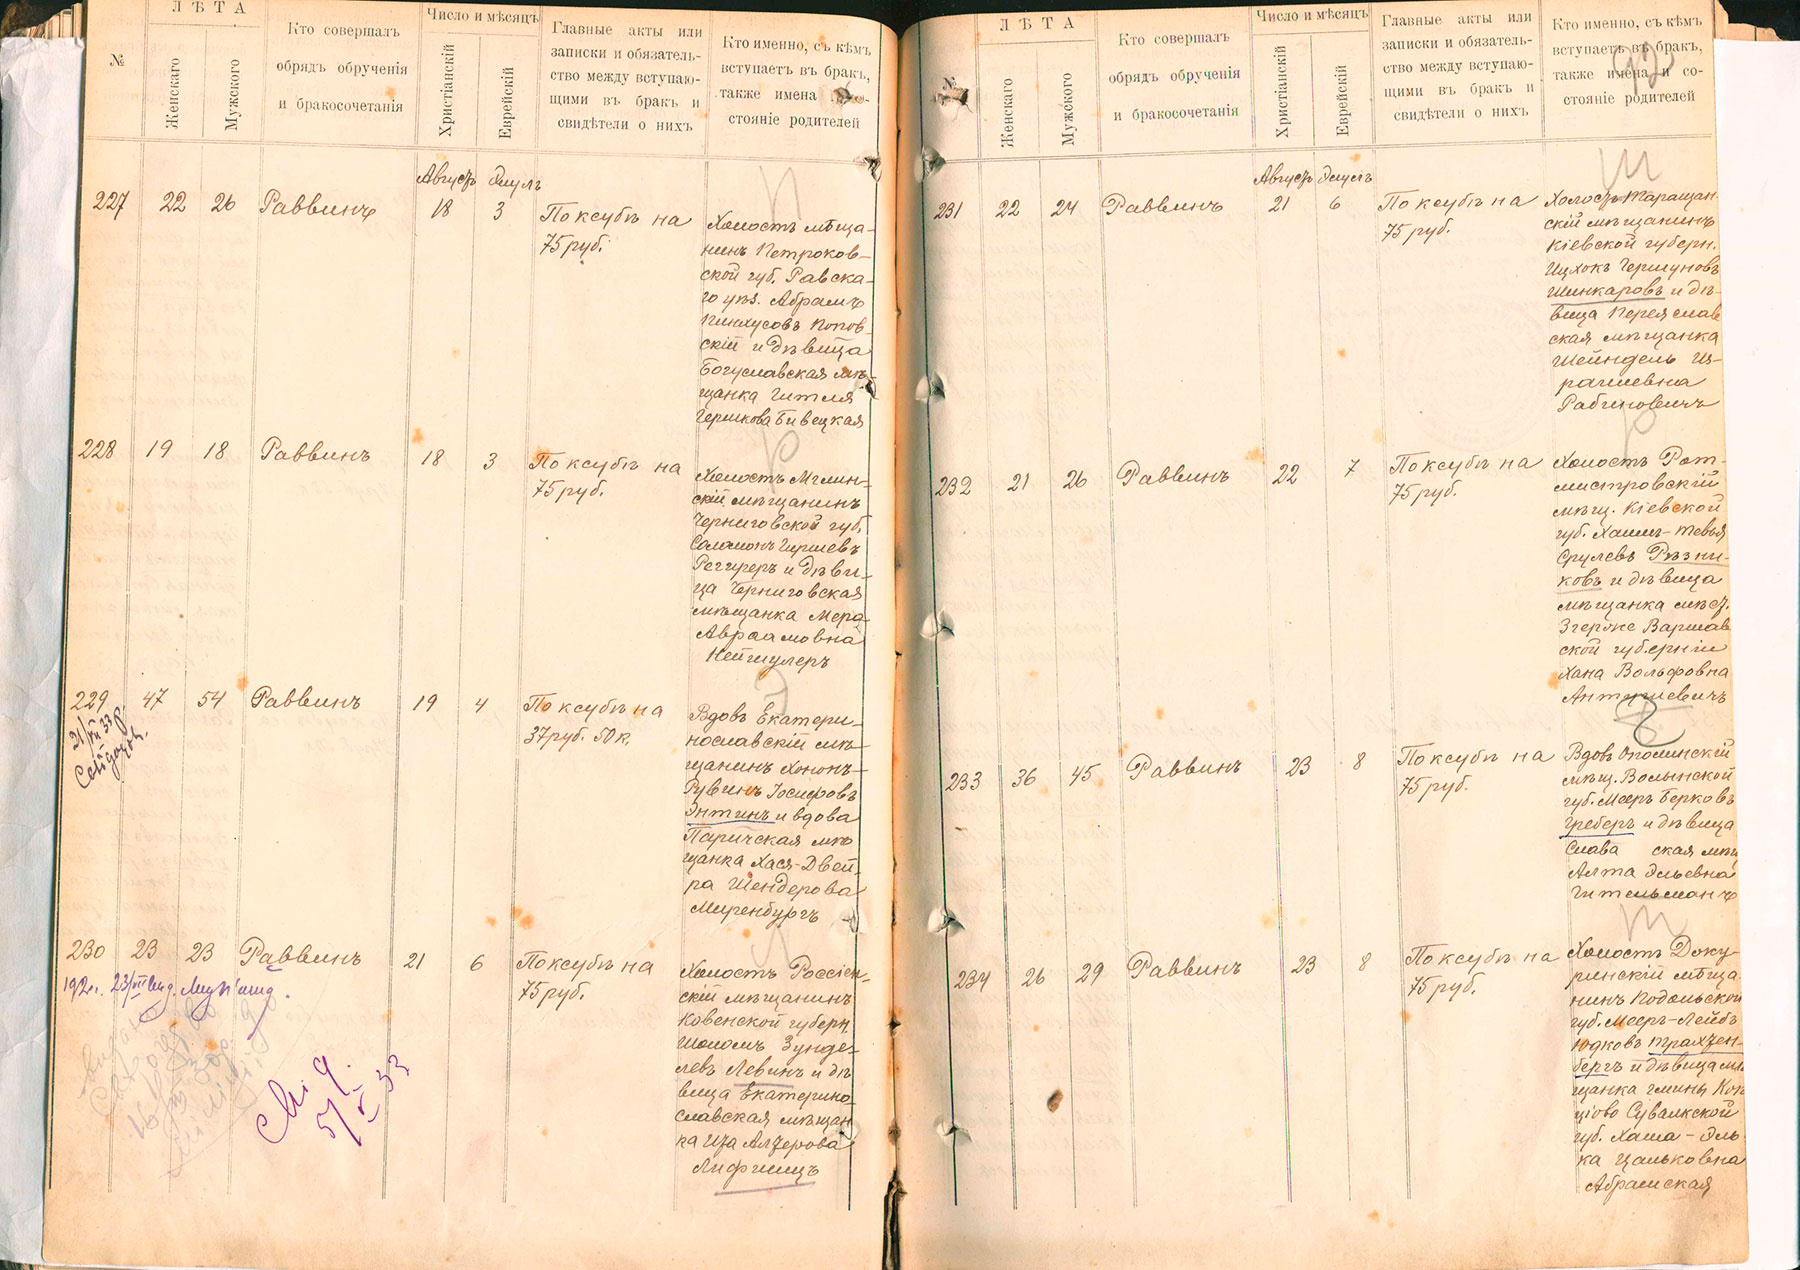 №
ЛѢТА
Женскаго
Мужского
Кто совершалъ
обрядъ обрученія
и бракосочетанія
Число и мѣсяцъ
Христіанскій
Еврейскій
Главные акты или
записки и обязатель-
ство между вступаю-
щими въ бракъ и
свидѣтели о нихъ
Кто именно, съ кѣмъ
вступаетъ въ бракъ,
также имена
стояніе родителей
Августъ Элулъ
227 22 26 Раввинъ 18 3
По ксубѣ на
75 руб.
Холостъ мѣща-
нинъ Петроков-
ской губ. Равска-
го уѣз. Абрамъ
Пинхусовъ Копов-
скій и дѣвица
Богуславская мѣ-
щанка Гителя
Гершкова Бивецкая
228 19 18 Раввинъ 18 3
По ксубѣ на
75 руб.
Холостъ Мглин-
скій мѣщанинъ
Черниговской губ.
Соломонъ Гиршевъ
Региреръ и дѣви-
ца Черниговская
мѣщанка Мера
Авраамовна
Нейшулеръ
229 47 54 Раввинъ 19 4
По ксубѣ на
37 руб. 50 к.
Вдовъ Екатери-
нославскій мѣ-
щанинъ Хононъ-
Рувинъ Іосифовъ
Энтинъ и вдова
Паричская мѣ
щанка Хася-Двей-
ра Шендерова
Миренбургъ
230 23 23 Раввинъ 21 6
По ксубѣ на
75 руб.
Холостъ Россіен-
скій мѣщанинъ
Ковенской губерн.
Шоломъ Зунде-
левъ Левинъ и дѣ
вица Екатерино-
славская мѣщан
ка Иза Лазерова
Лифшицъ
№
ЛѢТА
Женскаго
Мужского
Кто совершалъ
обрядъ обрученія
и бракосочетанія
Число и мѣсяцъ
Христіанскій
Еврейскій
Главные акты или
записки и обязатель-
ство между вступаю-
щими въ бракъ и
свидѣтели о нихъ
Кто именно, съ кѣмъ
вступаетъ въ бракъ,
также имена и со-
стояніе родителей
92
Августъ Элулъ
231 22 24 Раввинъ 21 6
По ксубѣ на
75 руб.
Холостъ Таращан-
скій мѣщанинъ
Кіевской губерн.
Ицхокъ Гершуновъ
Шинкаровъ и дѣ-
вица Переяслав
ская мѣщанка
Шейндель Из-
раилевна
Рабиновичъ
232 21 26 Раввинъ 22 7
По ксубѣ на
75 руб.
Холостъ Рот-
мистровскій
мѣщ. Кіевской
губ. Хаимъ-Тевья
Срулевъ Рѣзни-
ковъ и дѣвица
мѣщанка мѣст.
Згерже Варшав
ской губерніи
Хана Вольфовна
Антушевичъ
233 36 45 Раввинъ 23 8
По ксубѣ на
75 руб.
Вдовъ Ополинскій
мѣщ. Волынской
губ. Мееръ Берковъ
Греберъ и дѣвица
Слава ская мѣщ
Алта Эльевна
Гительманъ
234 26 29 Раввинъ 23 8
По ксубѣ на
75 руб.
Холостъ Доку-
ринскій мѣща
нинъ Подольской
губ. Мееръ-Лейбъ
Юдковъ Трахтен-
бергъ и дѣвица мѣ
щанка гмины Коп
ціово Сувалкской
губ. Хаша-Эль-
ка Цальковна
Абрамская